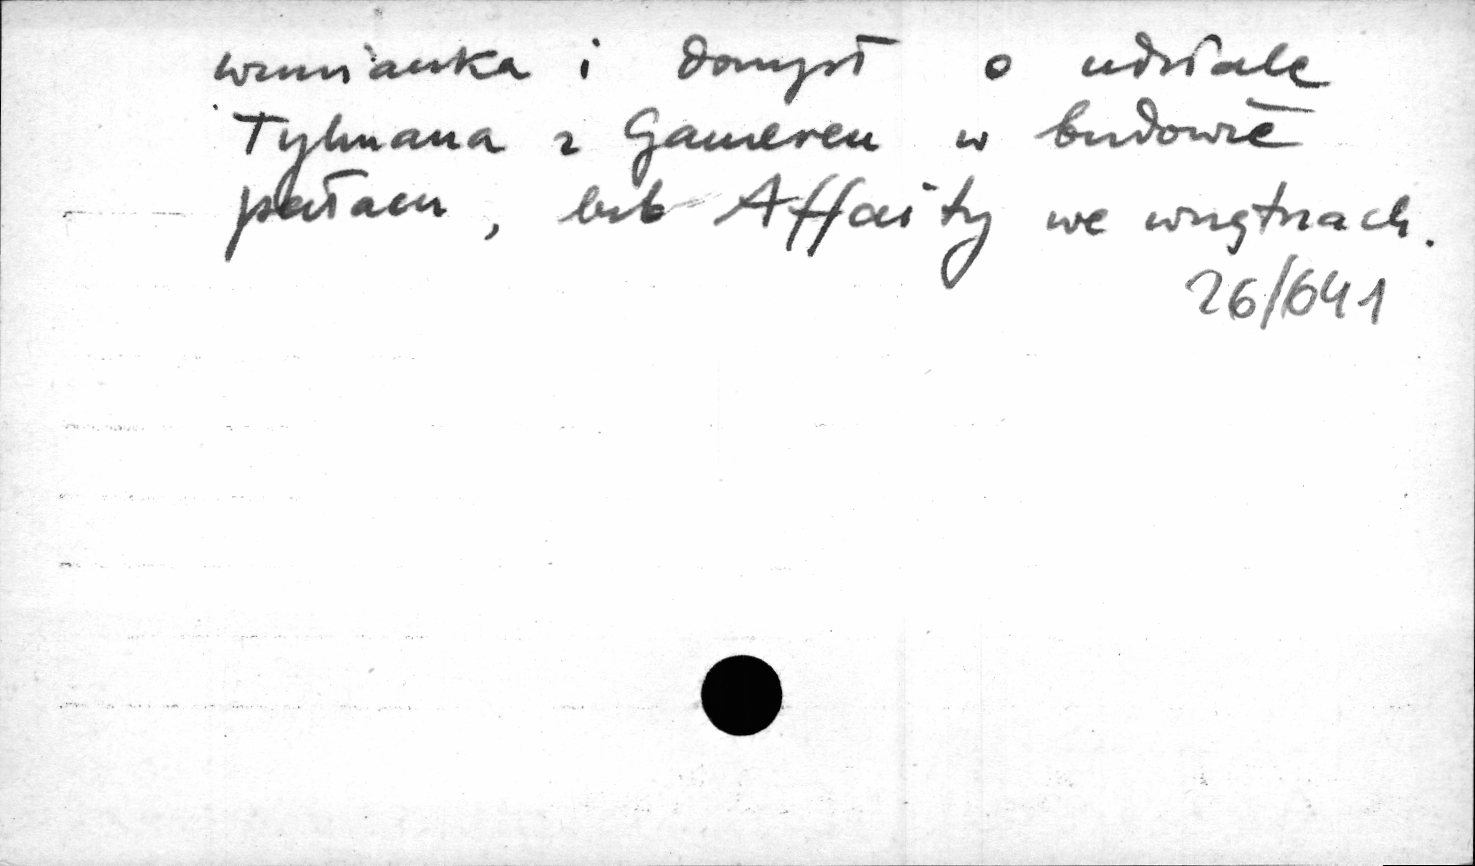 wzmianka i domysł o udziale
Tylmana z Gameren w budowie
pałacu, lub Affaity we wnętrzach.
26/641